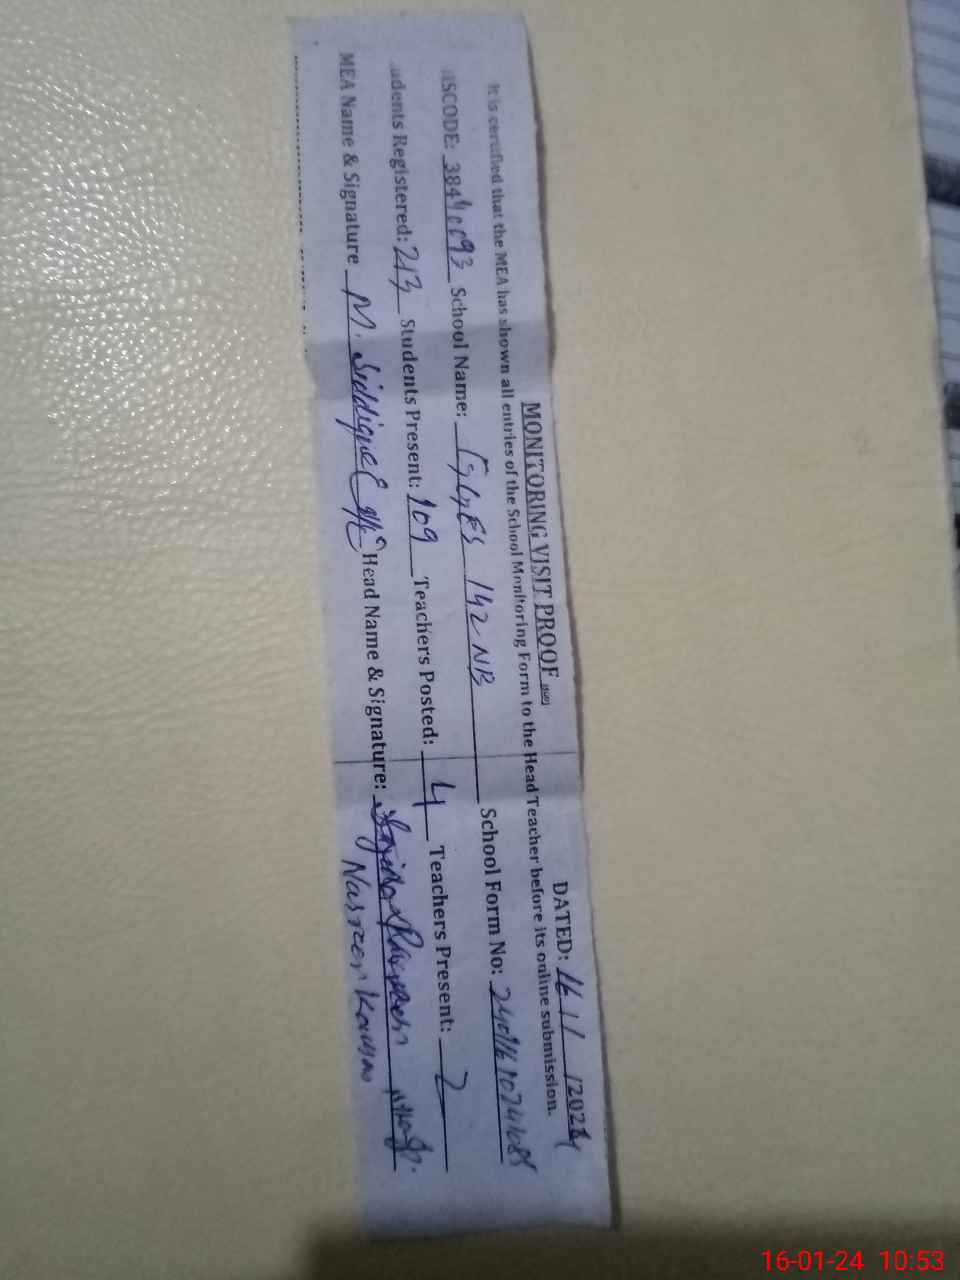 MONITORING VISIT PROOF DATED: 16 / 1 / 2024
It is certified that the MEA has shown all entries of the School Monitoring Form to the Head Teacher before its online submission.
ISCODE: 38440093 School Name: GGES 142 NB School Form No:
udents Registered: 213 Students Present: 109 Teachers Posted: 4 Teachers Present: 2
MEA Name & Signature M. Siddique Head Name & Signature:
Nasreen Kausar
16-01-24 10:53